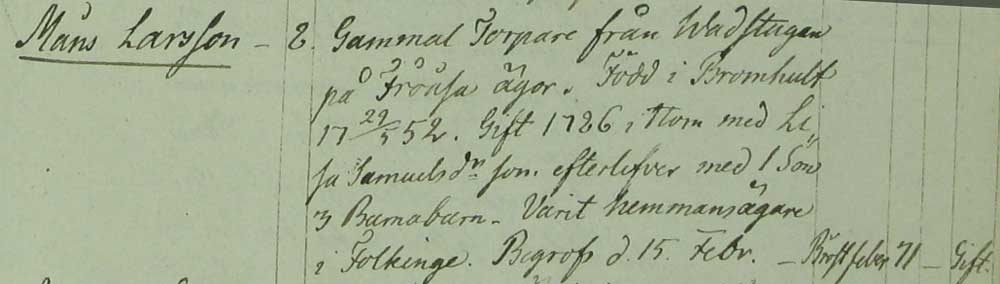 Måns Larsson – 2. Gammal Torpare från Wadstugan
på Fröåsa ägor. Född i Bromhult
17 29/5 52. Gift 1786, 1 Hom med Li„
sa Samuelsdr som efterlefver med 1 Son
3 Barnabarn – Varit hemmansägare
i Folkinge. Begrofs d. 15. Febr. – Bröstfeber 71 – Gift.